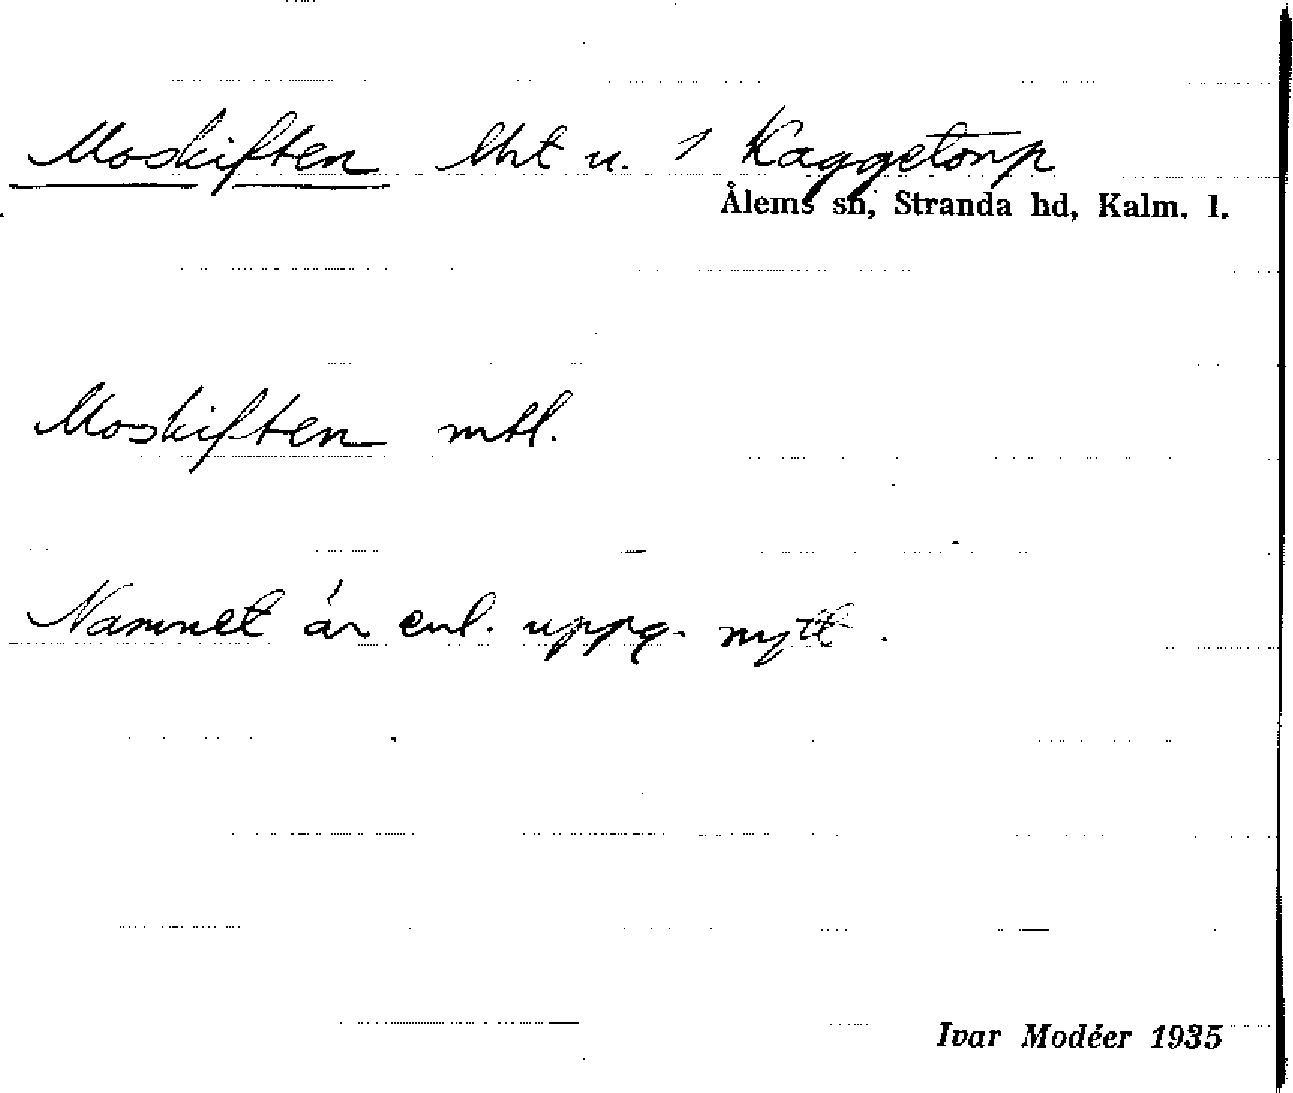 Moskiften lht u. 1 Kaggetorp
Ålems sn, Stranda hd, Kalm. l.
Moskiften mtl.
Namnet är enl. uppg. nytt.
Ivar Modéer 1935